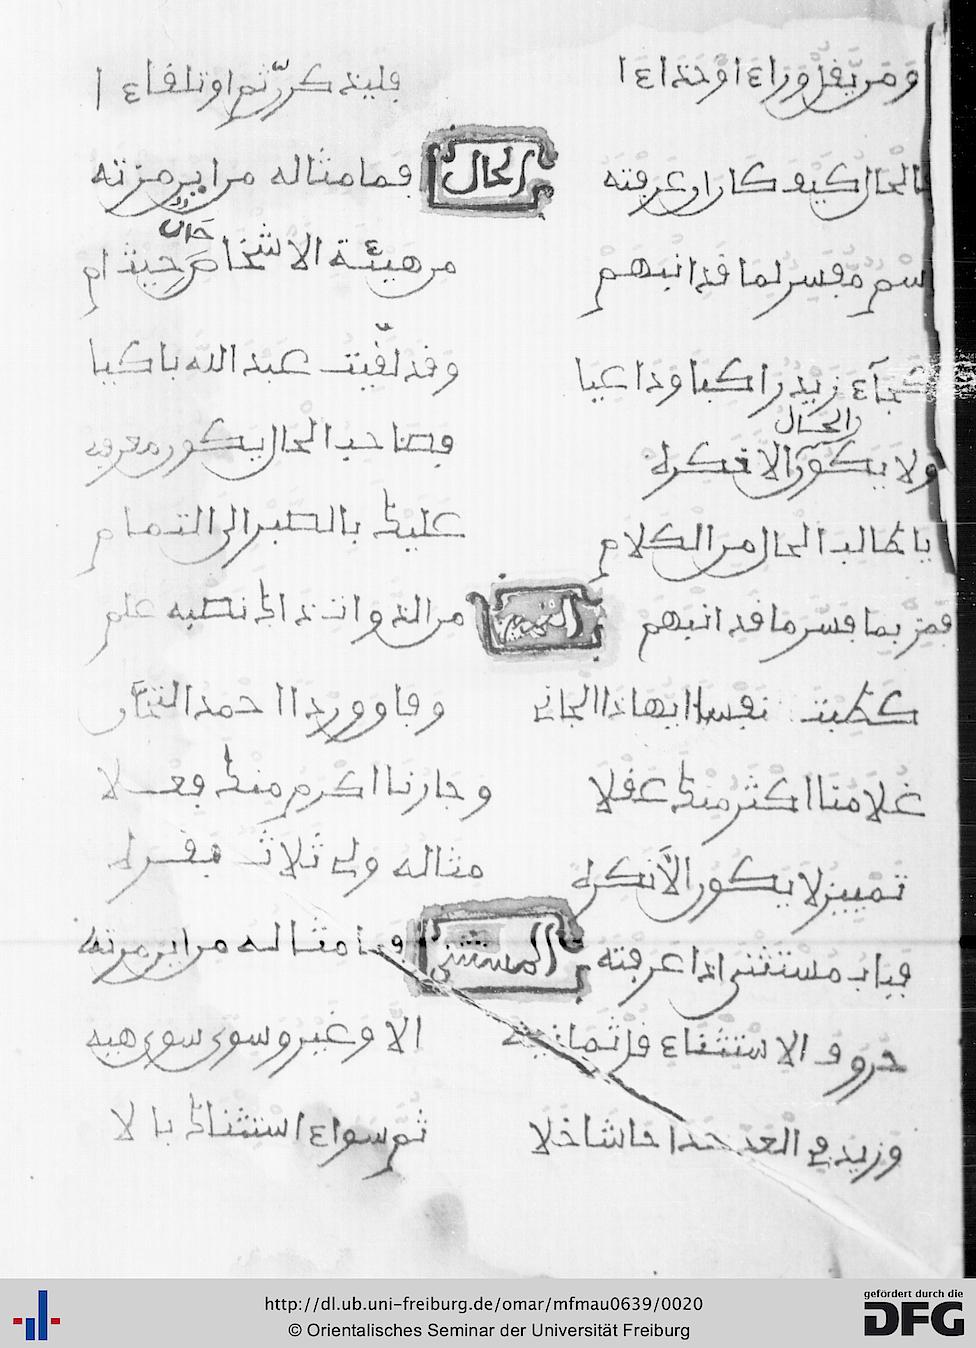 ومن يقل وراء او حذاءا فليذكرن ثم او تلقاءا
الحال
فالحال كيف كان ان عرفته فما مثاله مرا بن مزته
حال
اسم مفسر لما قد انبهم من هيئة الاشخاص حيث ام
كجاء زيد راكبا وداعيا وقد لقيت عبد الله باكيا
الحال
ولا يكون الا نكره فصاحب الحال يكون معرفه
يا طالب الحال من الكلام عليك بالصبر الى التمام
التمييز
فمز بما فسر ما قد انبهم من الذوات ذاك نصبه علم
كطبت نفسا ايها ذا الجاني
غلامنا اكثر منك عقلا وجارنا اكرم منك فعلا
تمييز لا يكون الا نكره مثاله ولي ثلاث بقره
المستثنى
فباب مستثنى اذا عرفته وما مثاله مرا بن مزته
حروف الاستثناء قل ثمانيه الا وغير وسوى سوى هيه
وزيد في العد عدا حاشا خلا ثم سواء استثناك بالا
http://dl.ub.uni-freiburg.de/omar/mfmau0639/0020
© Orientalisches Seminar der Universität Freiburg
gefördert durch die
DFG